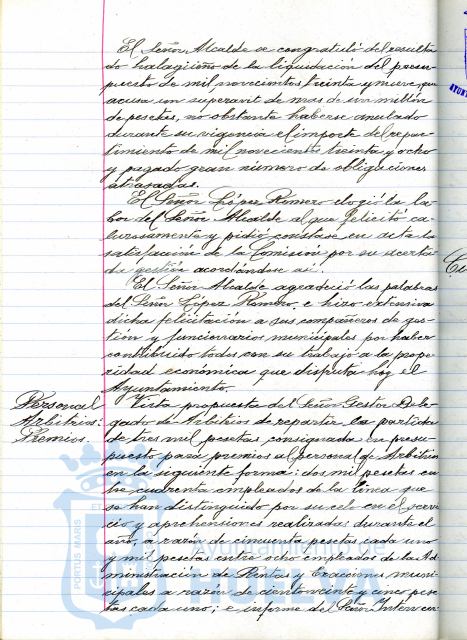 El Señor Alcalde se congratuló del resulta
do halagüeño de la liquidación del presu-
puesto de mil novecientos treinta y nueve que
acusa un superavit de mas de un millón
de pesetas, no obstante haberse anulado
durante su vigencia el importe del repar-
timiento de mil novecientos treinta y ocho
y pagado gran número de obligaciones
atrasadas.
El Señor López Romero elogió la la-
bor del Señor Alcalde al que felicitó ca-
lurosamente y pidió constase en acta la
satisfacción de la Comisión por su acerta
da gestión acordándose así.
El Señor Alcalde agradeció las palabras
del Señor López Romero, e hizo extensiva
dicha felicitación a sus compañeros de ges-
tión y funcionarios municipales por haber
contribuido todos con su trabajo a la prospe-
ridad económica que disfruta hoy el
Ayuntamiento.
Personal
Arbitrios:
Premios.
Vista propuesta del Señor Gestor Dele-
gado de Arbitrios de repartir la partida
de tres mil pesetas consignada en presu-
puesto para premios al personal de Arbitrios
en la siguiente forma: dos mil pesetas en
tre cuarenta empleados de la línea que
se han distinguido por su celo en el servi-
cio y aprehensiones realizadas durante el
año, a razón de cincuenta pesetas cada uno
y mil pesetas entre ocho empleados de la Ad
ministración de Rentas y Exacciones muni-
cipales a razón de ciento veinte y cinco pese
tas cada uno; e informe del Señor Interven-
PORTUS MARIS ET
Ayuntamiento de